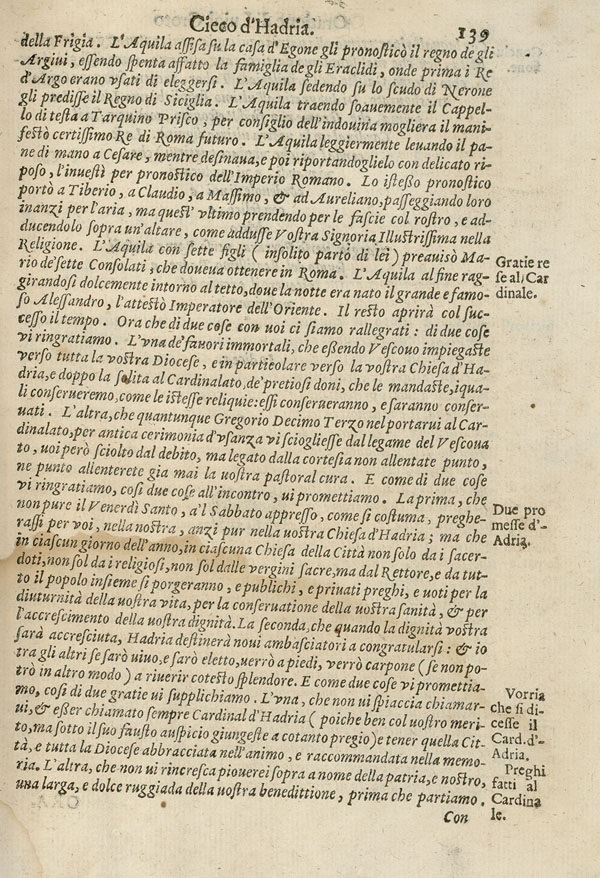 Cieco d'Hadria. 139
della Frigia. L'Aquila assisa su la casa d'Egone gli pronosticò il regno de gli
Argiui, essendo spenta affatto la famiglia de gli Eraclidi, onde prima i Re
d'Argo erano vsati di eleggersi. L'Aquila sedendo su lo scudo di Nerone
gli predisse il Regno di Siciglia. L'Aquila traendo soauemente il Cappel-
lo di testa a Tarquino Prisco, per consiglio dell'indouina mogliera il mani-
festò certissimo Re di Roma futuro. L'Aquila leggiermente leuando il pa-
ne di mano a Cesare, mentre desinaua, e poi riportandoglielo con delicato ri-
poso, l'inuestì per pronostico dell'Imperio Romano. Lo istesso pronostico
portò a Tiberio, a Claudio, a Massimo, & ad Aureliano, passeggiando loro
inanzi per l'aria, ma quest' vltimo prendendo per le fascie col rostro, e ad-
ducendolo sopra un'altare, come addusse Vostra Signoria Illustrissima nella
Religione. L'Aquila con sette figli (insolito parto di lei) preauisò Ma-
rio de' sette Consolati, che doueua ottenere in Roma. L'Aquila al fine rag-
girandosi dolcemente intorno al tetto, doue la notte era nato il grande e famo-
so Alessandro, l'attestò Imperatore dell'Oriente. Il resto aprirà col suc-
cesso il tempo. Ora che di due cose con uoi ci siamo rallegrati: di due cose
vi ringratiamo. L'vna de' fauori immortali, che essendo Vescouo impiegaste
verso tutta la vostra Diocese, e in particolare verso la vostra Chiesa d'Ha-
dria, e doppo la salita al Cardinalato, de' pretiosi doni, che le mandaste, i qua-
li conserueremo, come le istesse reliquie: essi conserueranno, e saranno conser-
uati. L'altra, che quantunque Gregorio Decimo Terzo nel portarui al Car-
dinalato, per antica cerimonia d'vsanza vi sciogliesse dal legame del Vescoua
to, uoi però sciolto dal debito, ma legato dalla cortesia non allentate punto,
ne punto allenterete gia mai la uostra pastoral cura. E come di due cose
vi ringratiamo, così due cose all'incontro, ui promettiamo. La prima, che
non pure il Venerdì Santo, a'l Sabbato appresso, come si costuma, preghe-
rassi per voi, nella nostra, anzi pur nella uostra Chiesa d'Hadria; ma che
in ciascun giorno dell'anno, in ciascuna Chiesa della Città non solo da i sacer-
doti, non sol da i religiosi, non sol dalle vergini sacre, ma dal Rettore, e da tut-
to il popolo insieme si porgeranno, e publichi, e priuati preghi, e uoti per la
diuturnità della uostra vita, per la conseruatione della uostra sanità, & per
l'accrescimento della uostra dignità. La seconda, che quando la dignità vostra
sarà accresciuta, Hadria destinerà noui ambasciatori a congratularsi: & io
tra gli altri se sarò uiuo, e sarò eletto, uerrò a piedi, verrò carpone (se non po-
trò in altro modo) a riuerir cotesto splendore. E come due cose vi promettia-
mo, così di due gratie ui supplichiamo. L'vna, che non ui spiaccia chiamar-
ui, & esser chiamato sempre Cardinal d'Hadria (poiche ben col uostro meri-
to, ma sotto il suo fausto auspicio giungeste a cotanto pregio) e tener quella Cit-
tà, e tutta la Diocese abbracciata nell'animo, e raccommandata nella memo-
ria. L'altra, che non ui rincresca piouerei sopra a nome della patria, e nostro,
una larga, e dolce ruggiada della uostra benedittione, prima che partiamo.
Con
Gratie re
se al Car
dinale.
Due pro
messe d'-
Adria.
Vorria
che si di-
cesse il
Card. d'-
Adria.
Preghi
fatti al
Cardina
le.